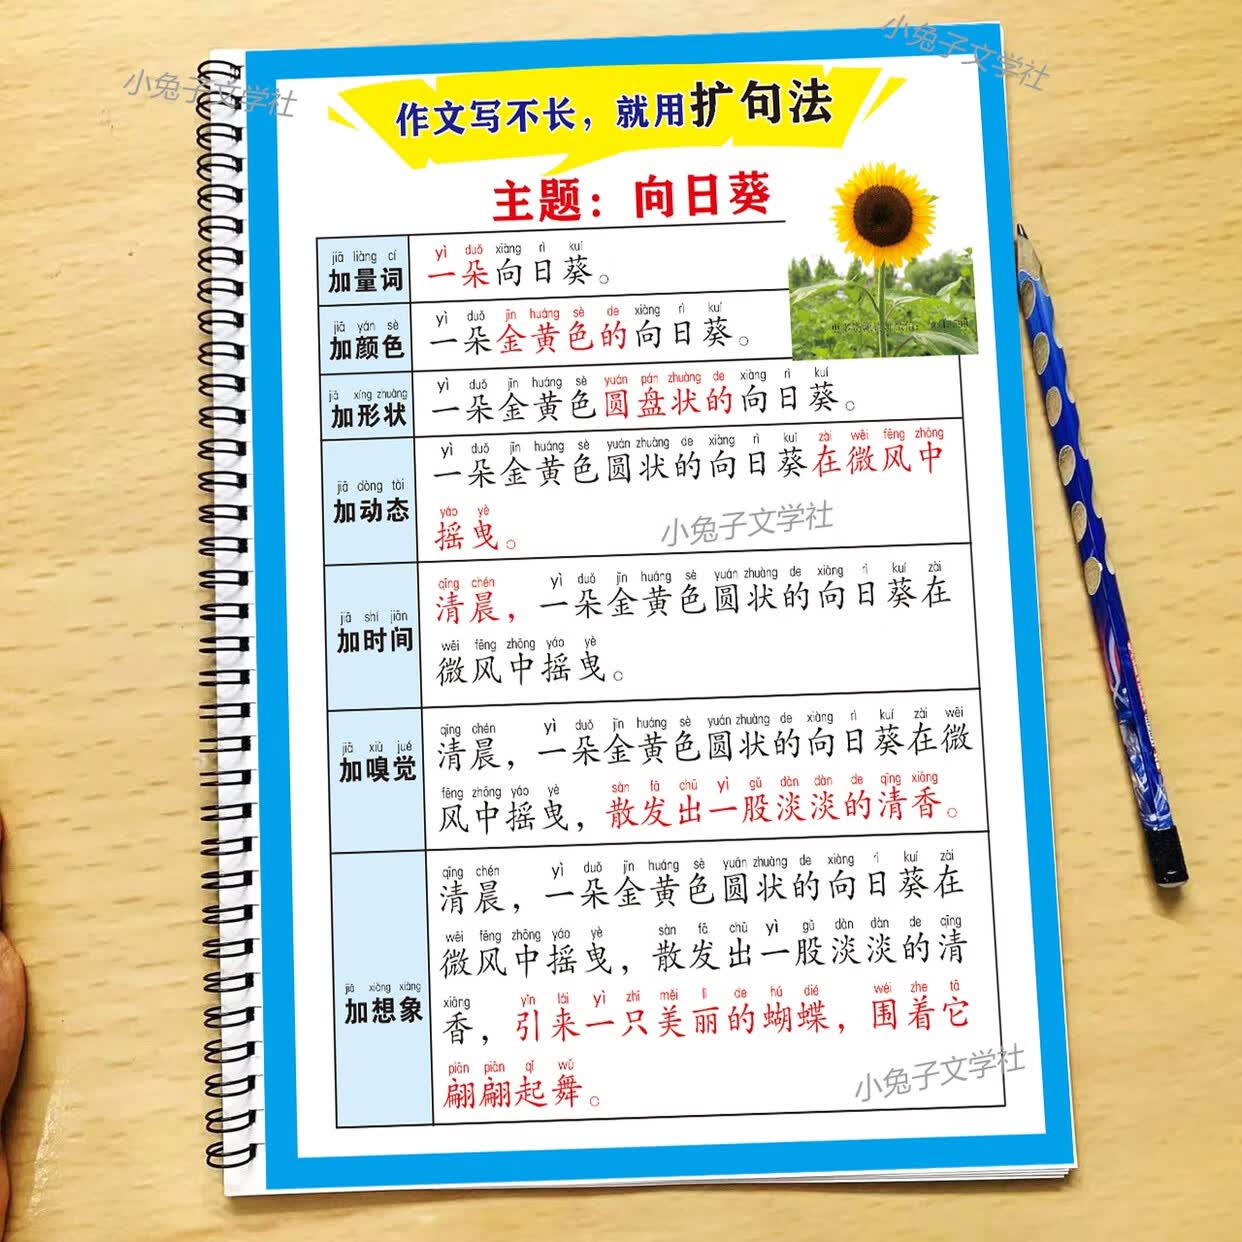 小兔子文学社
小兔子文学社
作文写不长，就用扩句法
主题：向日葵
jiā liàng cí
加量词
yì duǒ xiàng rì kuí
一朵向日葵。
jiā yán sè
加颜色
yì duǒ jīn huáng sè de xiàng rì kuí
一朵金黄色的向日葵。
jiā xíng zhuàng
加形状
yì duǒ jīn huáng sè yuán pán zhuàng de xiàng rì kuí
一朵金黄色圆盘状的向日葵。
jiā dòng tài
加动态
yì duǒ jīn huáng sè yuán zhuàng de xiàng rì kuí zài wēi fēng zhōng
一朵金黄色圆状的向日葵在微风中
yáo yè
摇曳。
小兔子文学社
jiā shí jiān
加时间
qīng chén yì duǒ jīn huáng sè yuán zhuàng de xiàng rì kuí zài
清晨，一朵金黄色圆状的向日葵在
wēi fēng zhōng yáo yè
微风中摇曳。
jiā xiù jué
加嗅觉
qīng chén yì duǒ jīn huáng sè yuán zhuàng de xiàng rì kuí zài wēi
清晨，一朵金黄色圆状的向日葵在微
fēng zhōng yáo yè sàn fā chū yì gǔ dàn dàn de qīng xiāng
风中摇曳，散发出一股淡淡的清香。
jiā xiǎng xiàng
加想象
qīng chén yì duǒ jīn huáng sè yuán zhuàng de xiàng rì kuí zài
清晨，一朵金黄色圆状的向日葵在
wēi fēng zhōng yáo yè sàn fā chū yì gǔ dàn dàn de qīng
微风中摇曳，散发出一股淡淡的清
xiāng yǐn lái yì zhī měi lì de hú dié wéi zhe tā
香，引来一只美丽的蝴蝶，围着它
piān piān qǐ wǔ
翩翩起舞。
小兔子文学社